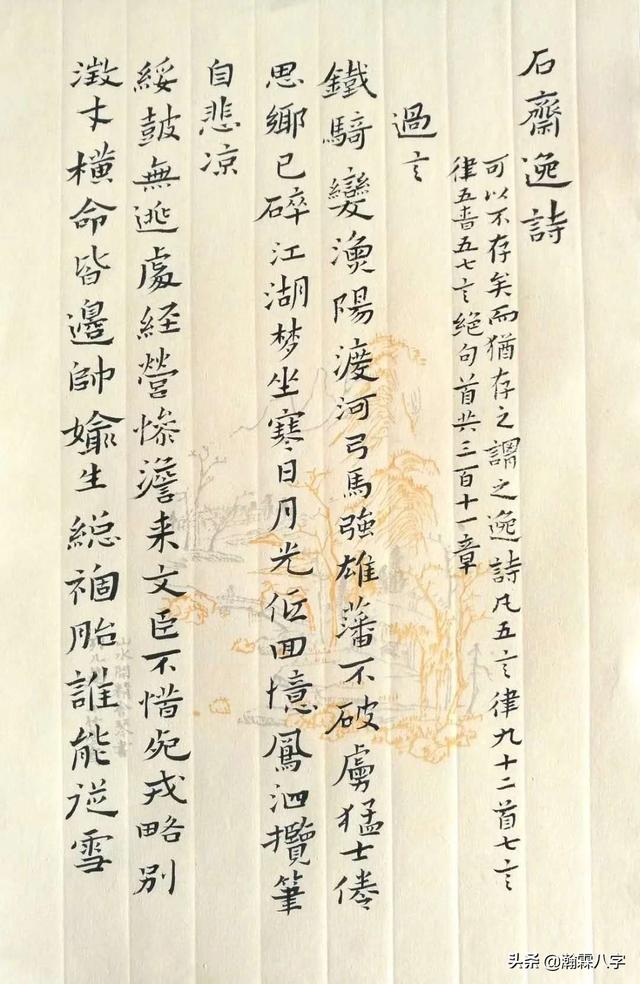 石齋逸詩
可以不存矣而猶存之謂之逸詩凡五言律九十二首七言
律五五七言绝句首共三百十一章
過言
鐵騎變漁陽渡河弓馬強雄藩不破虜猛士倦
思鄉已碎江湖梦坐寒日月光低回憶鳳泗攬筆
自悲凉
綏鼓無逃處経營慘澹来文臣不惜死戎略别
澂才橫命皆邊帥婾生総禍胎誰能逆雪
头条 @瀚霖八字